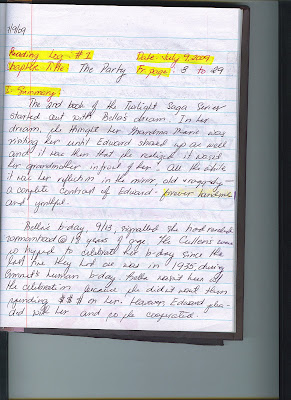 7/9/09
Reading Log # 1 Date: July 9, 2009
Chapter Title: The Party Fr. page: 3 to 29
I. Summary:
The 2nd book of the Twilight Saga Series
started out with Bella's dream. In her
dream, she thought her Grandma Marie was
visiting her until Edward showed up as well
and it was then that she realized it wasn't
her grandmother infront of her. All the while
it was her reflection in the mirror, old & raggedy -
a complete contrast of Edward - forever handsome
and youthful.
Bella's b-day, 9/13, signalled she had reached
womanhood @ 18 years of age. The Cullens were
so hyped to celebrate her b-day since the
last one they had was in 1935, during
Emmett's human b-day. Bella wasn't keen of
the celebration because she didn't want them
spending $$$ on her. However, Edward plea-
ded with her and so she cooperated.